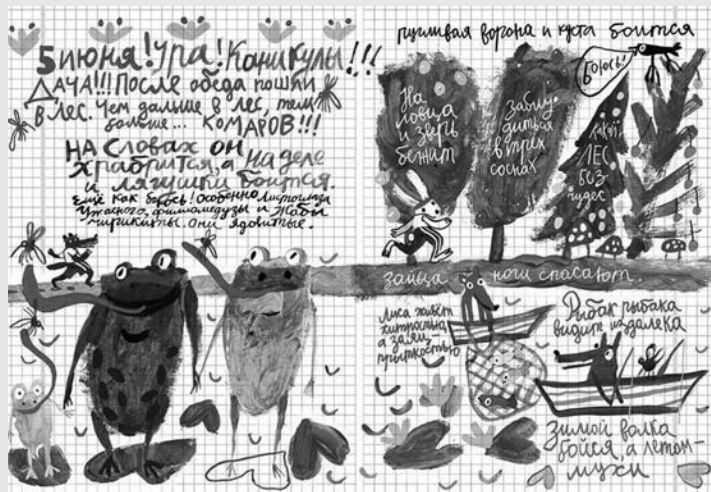 5 июня! Ура! Каникулы!!!
ДАЧА!!! После обеда пошли
в лес. Чем дальше в лес, тем
больше... КОМАРОВ!!!
НА СЛОВАХ ОН
ХРАБРИТСЯ, а НА ДЕЛЕ
и лягушки боится.
Ещё как боюсь! Особенно листолаза
Ужасного, филломедузы и жабы-
чирикиты. Они ядовитые.
пугливая ворона и куста боится
Боюсь!
На
ловца
и зверь
бежит
Заблу
диться
в трёх
соснах
Какой
ЛЕС
БЕЗ
чудес
зайца ноги спасают.
Лиса живёт
хитростью,
а заяц
прыткостью
Рыбак рыбака
видит издалека
Зимой волка
бойся, а летом-
мухи